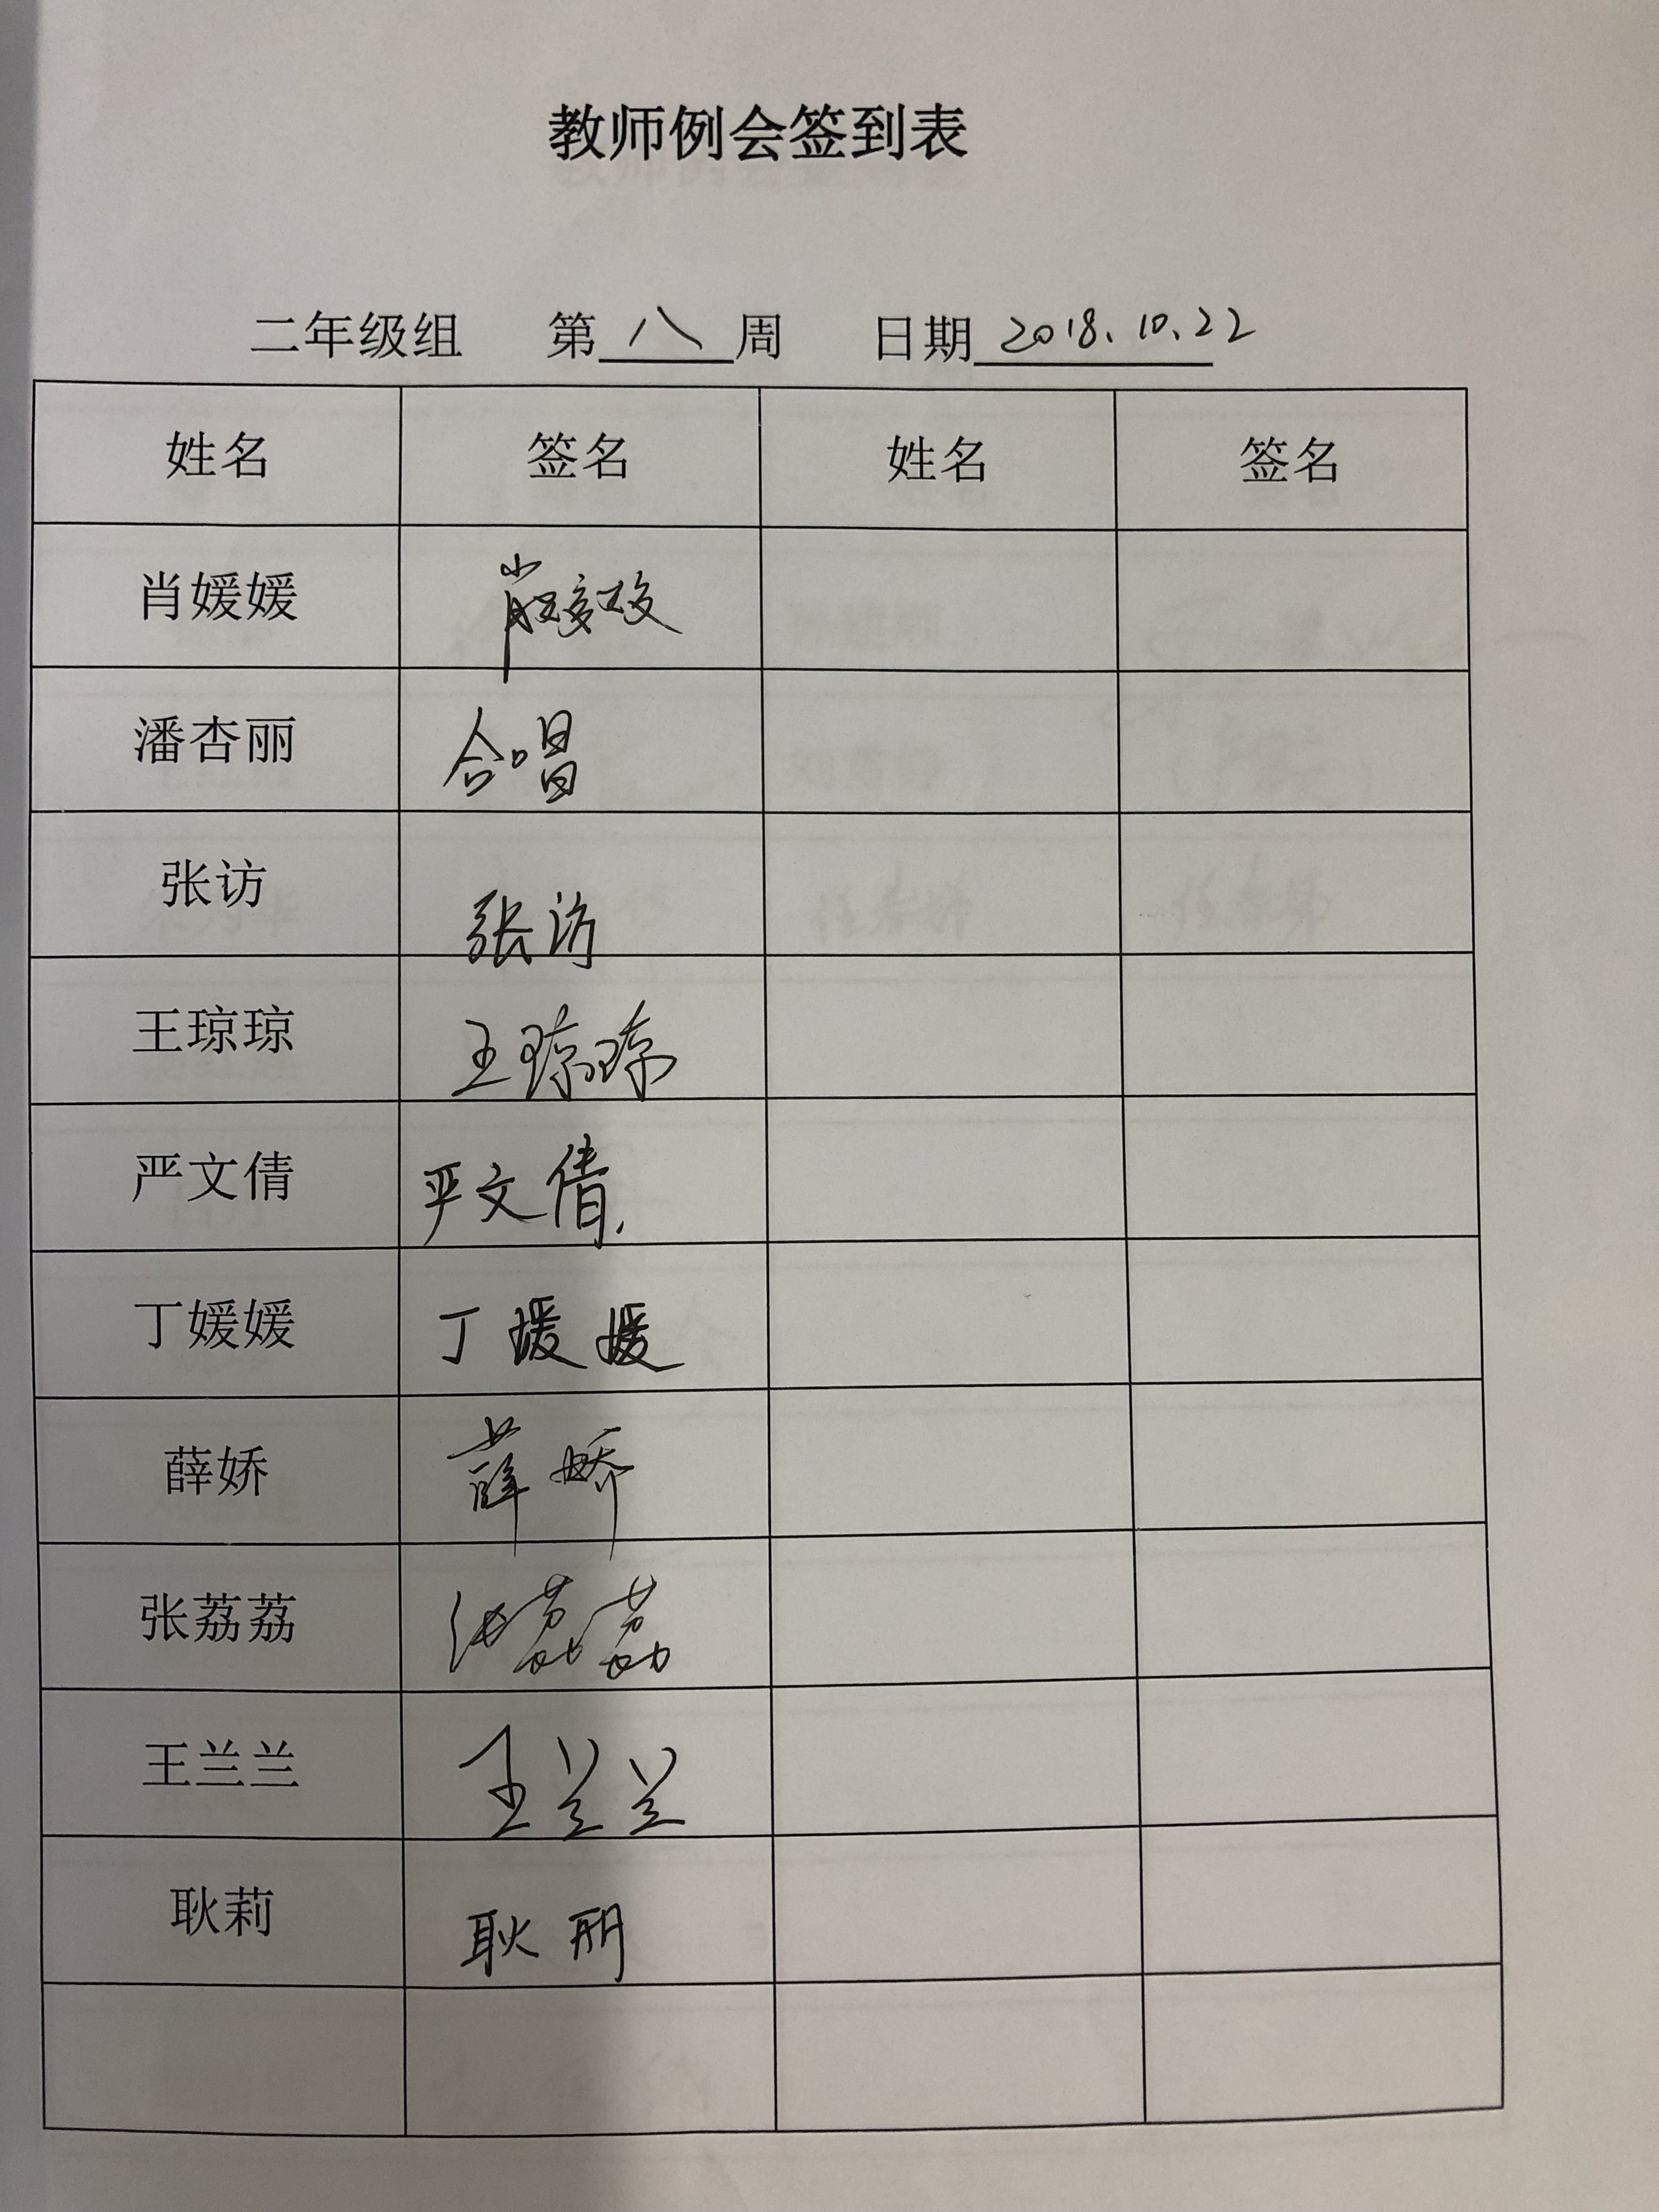 教师例会签到表
二年级组 第八周 日期2018.10.22
姓名 签名 姓名 签名
肖媛媛 肖媛媛
潘杏丽 合唱
张访 张访
王琼琼 王琼琼
严文倩 严文倩.
丁媛媛 丁媛媛
薛娇 薛娇
张荔荔 张荔荔
王兰兰 王兰兰
耿莉 耿